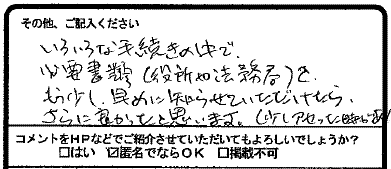 その他、ご記入ください
いろいろな手続きの中で、
必要書類（役所や法務局）を、
もう少し早めに知らせていただけたら、
さらに良かったと思います。（少しアセった時もあり
コメントをHPなどでご紹介させていただいてもよろしいでしょうか？
□はい ☑匿名でならOK □掲載不可